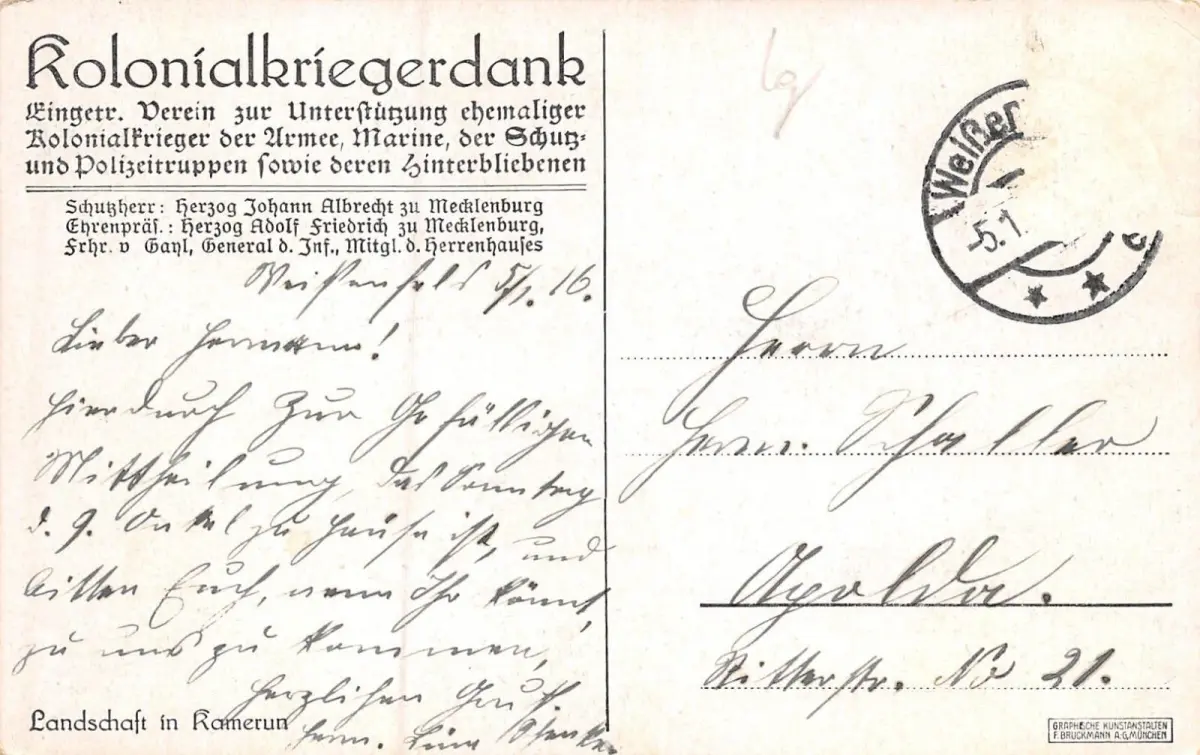 Kolonialkriegerdank
Eingetr. Verein zur Unterstützung ehemaliger
Kolonialkrieger der Armee, Marine, der Schutz-
und Polizeitruppen sowie deren Hinterbliebenen
Schutzherr: Herzog Johann Albrecht zu Mecklenburg
Ehrenpräs.: Herzog Adolf Friedrich zu Mecklenburg,
Frhr. v Gayl, General d. Inf., Mitgl. d. Herrenhauses
Weißenfels 5/1. 16.
Lieber Hermann!
Hierdurch zur Gefälligen
Mittheilung, das Sonntag
d. 9. Onkel zu Hause ist, und
bitten Euch, wenn Ihr könnt,
zu uns zu kommen,
Herzlichen Gruß.
Herm. Lina
Landschaft in Kamerun
Weißen
-5.1
c
Herrn
Herm. Schaller
Apolda.
Ritterstr. No 21.
GRAPHISCHE KUNSTANSTALTEN
F. BRUCKMANN A.G, MÜNCHEN